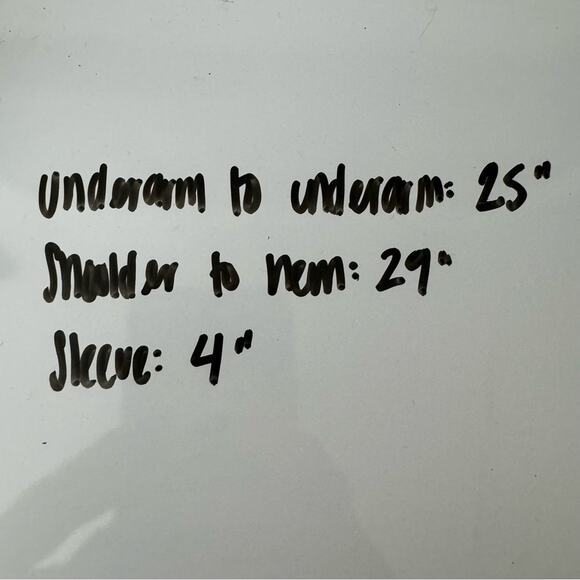 Underarm to underarm: 25"
Shoulder to hem: 29"
Sleeve: 4"